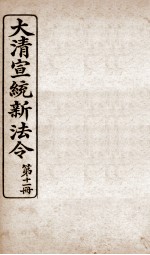 大清宣統新法令
第十二冊